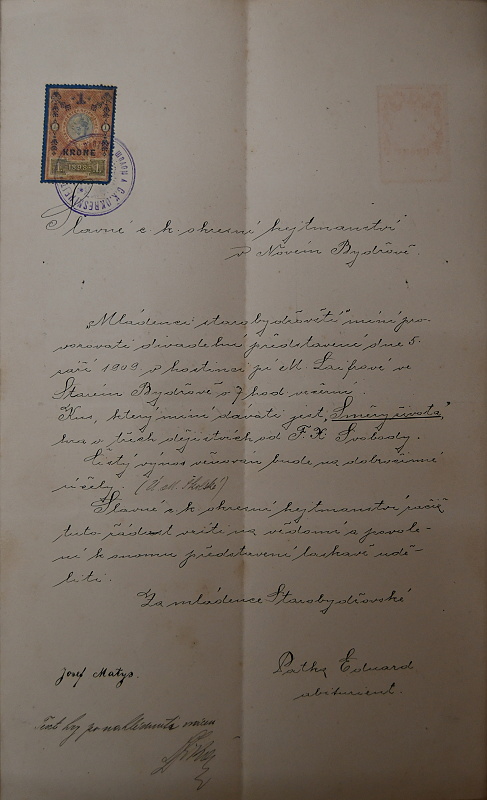 1
KRONE
1 1898 1
C.K.OKRESNÍ
Slavné c k. okresní hejtmanství
v Novém Bydžově.
„Mládenci starobydžovští“ míní pro-
vozovati divadelní představení dne 5.
září 1909 v hostinci pí M. Laifrové ve
Starém Bydžově o 7 hod večerní
Kus, který míní dávati jest „Směry života“
hra o třech dějstvích od F. X Svobody.
Čistý výnos věnován bude na dobročinné
účely.
Slavné c k okresní hejtmanství račiž
tuto žádost vzíti na vědomí a povole-
ní k onomu představení laskavě udě-
liti.
Za mládence Starobydžovské
Josef Matys.
Patka Eduard
abiturient.